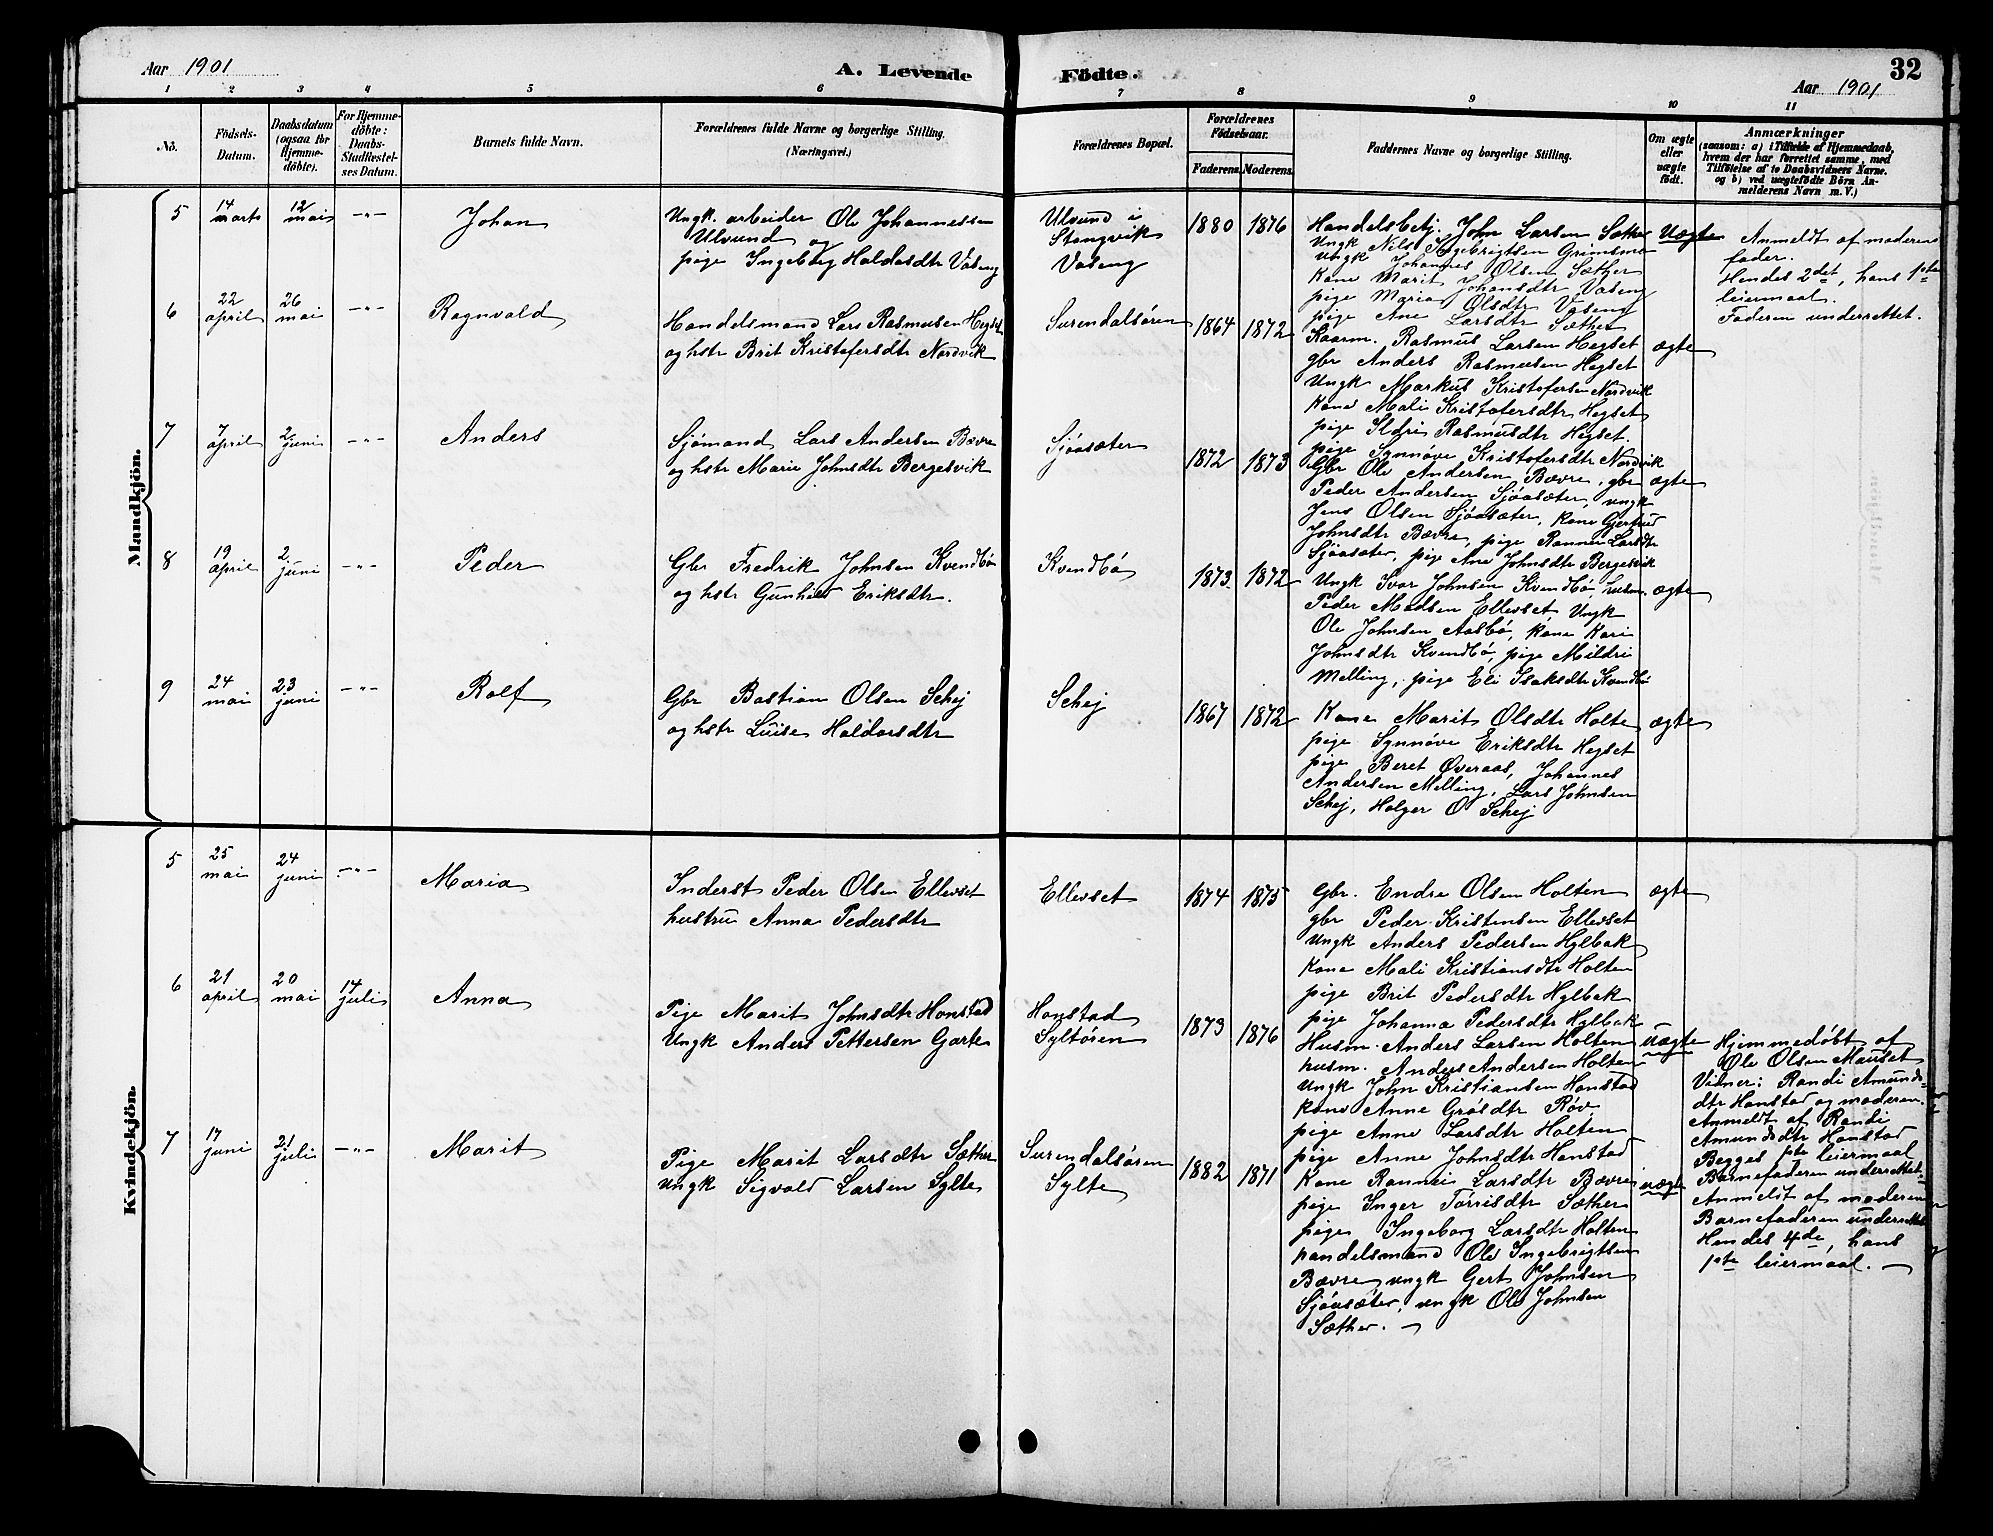 Aar 1901
A. Levende Födte.
32
Aar 1901
1 2 3 4 5 6 7 8 9 10 11
No.
Födsels-Datum.
Daabsdatum (ogsaa for Hjemme-döbte).
For Hjemme-döbte: Daabs-Stadfæstel-ses Datum.
Barnets fulde Navn.
Forældrenes fulde Navne og borgerlige Stilling.
(Næringsvei.)
Forældrenes Bopæl.
Forældrenes Födselsaar.
Faderens. Moderens.
Faddernes Navne og borgerlige Stilling.
Om ægte eller uægte födt.
Anmærkninger
(saasom: a) i Tilfælde af Hjemmedaab,
hvem der har forrettet samme, med
Tilföielse af to Daabsvidners Navne.
og b) ved uægtefödte Börn An-
melderens Navn m. V.)
Mandkjön.
5
14 marts
12 mai
-"-
Johan
Ungk. arbeider Ole Johannessen
Ulvund og
pige Ingeborg Haldosdtr Vaseng
Ulvund i
Stangvik
Vaseng
1880
1876
Handelsbetj. John Larsen Sæther
Ungk Nils Ingebrigtsen Grimsmo
Ungk Johannes Olsen Sæther
Kone Marit Johansdtr Vaseng
pige Maria Olsdtr Vaseng
pige Ane Larsdtr Sæther
Uægte
Anmeldt af moderens
fader.
Hendes 2det, hans 1ste
leiermaal.
Faderen underrettet.
6
22 april
26 mai
-"-
Ragnvald
Handelsmand Lars Rasmusen Hegset
og hstr Brit Kristofersdtr Nordvik
Surendalsøren
1864
1872
Kaarm. Rasmus Larsen Hegset
gbr Anders Rasmusen Hegset
Ungk Markus Kristofersen Nordvik
Kone Mali Kristofersdtr Hegset
pige Sldri Rasmusdtr Hegset.
pige Synnöve Kristofersdtr Nordvik
ægte
7
7 april
2 juni
-"-
Anders
Sjömand Lars Andersen Bævre
og hstr Marie Johnsdtr Bergesvik
Sjöasæter
1872
1873
Gbr Ole Andersen Bævre, gbr
Peder Andersen Sjöasæter, ungk
Jens Olsen Sjöasæter, kone Gjertrud
Johnsdtr Bævre, pige Rannei Larsdtr
Sjöasæter, pige Ane Johnsdtr Bergesvik
ægte
8
19 april
2 juni
-"-
Peder
Gbr Fredrik Johnsen Kvendbö
og hstr Gunhild Eriksdtr.
Kvendbö
1873
1872
Ungk Ivar Johnsen Kvendbö, husm.
Peder Madsen Ellevset Ungk
Ole Johnsen Aasbö, kone Kari
Johnsdtr Kvendbö, pige Mildri
Melling, pige Eli Isaksdtr Kvendbö
ægte
9
24 mai
23 juni
-"-
Rolf
Gbr Bastian Olsen Schej
og hstr Luise Haldorsdtr
Schej
1867
1872
Kone Marit Olsdtr Holte
pige Synnöve Eriksdtr Hegset
pige Beret Øveraas, Johannes
Andersen Melling, Lars Johnsen
Schej, Holger O Schej
ægte
Kvindekjön.
5
25 mai
24 juni
-"-
Maria
Inderst Peder Olsen Ellevset
hustru Anna Pedersdtr
Ellevset
1874
1875
Gbr. Endre Olsen Holten
gbr Peder Kristensen Ellevset
Ungk Anders Pedersen Hylbak
Kone Mali Kristiansdtr Holten
pige Brit Pedersdtr Hylbak
pige Johanna Pedersdtr Hylbak
ægte
6
21 april
20 mai
14 juli
Anna
Pige Marit Johnsdtr Honstad
Ungk Anders Pettersen Garte
Honstad
Syltören
1873
1876
Husm. Anders Larsen Holten
husm. Anders Andersen Holten
Ungk John Kristiansen Honstad
Kone Anne GröSdtr Röv
pige Anne Larsdtr Holten
pige Anne Johnsdtr Honstad
uægte
Hjemmedöbt af
Ole Olsen Mauset
Vidner: Randi Amunds-
dtr Honstad og moderen.
Anmeldt af Randi
Amundsdtr Honstad
Begges 1ste leiermaal
Barnefaderen underrettet.
7
17 juni
21 juli
-"-
Marit
Pige Marit Larsdtr Sæther
Ungk Sigvald Larsen Sylte
Surendalsören
Sylte
1882
1871
Kone Rannei Larsdtr Bævre
pige Inger Torrisdtr Sæther
pige Ingeborg Larsdtr Holten
handelsmand Ole Ingebrigtsen
Bævre ungk Gert Johnsen
Sjöasæter, ungk Ole Johnsen
Sæther. —
uægte
Anmeldt af moderen
Barnefaderen underrettet
Hendes 4de, hans
1ste leiermaal. —